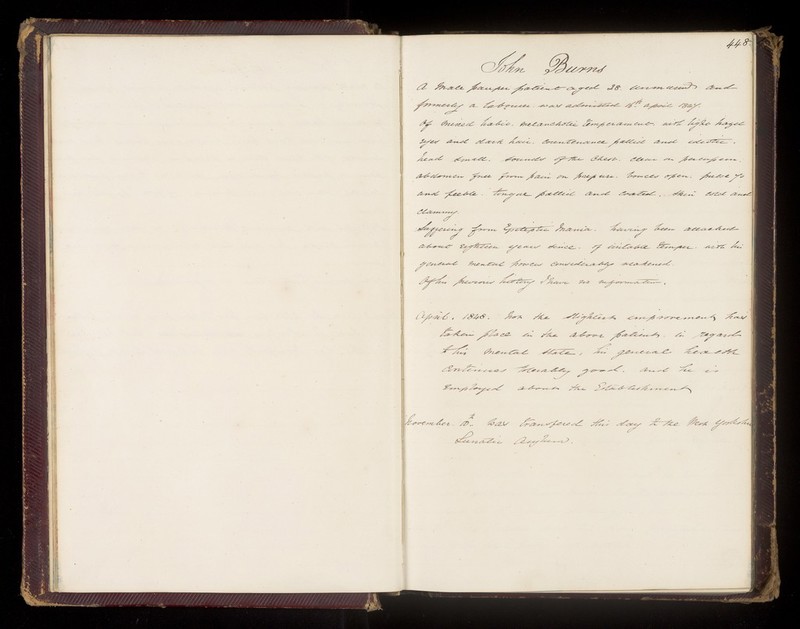 448.
John Burns
A Male pauper patient aged 28. unmarried and
formerly a Labourer was admitted 15th April 1847.
Of Middle habit. melancholic temperament with light hazel
eyes and dark hair. countenance pallid and idiotic.
head small. sounds of the Chest. clear on percussion.
abdomen free from pain on pressure. bowels open. pulse 70
and feeble. tongue pallid and coated. Skin cold and
clammy.
Suffering from Epileptic Mania. having been attacked
about eighteen years since. of irritable temper with his
general mental powers considerably weakened.
Of his previous history I have no information.
April. 1848. Not the slightest improvement has
taken place in the above patient. in regard
to his mental state; his general health
continues tolerably good. and he is
employed about the Establishment
November. Was transfered this day to the West Yorkshire
Lunatic Asylum.